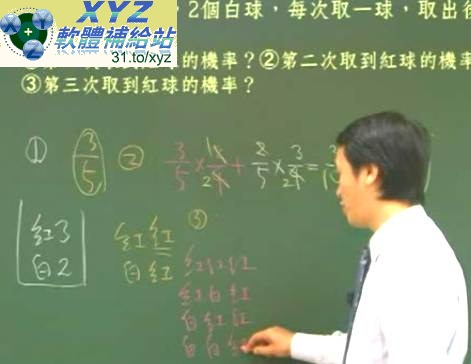 XYZ
軟體補給站
31.to/xyz
，2個白球，每次取一球，取出
的機率？②第二次取到紅球的機率
③第三次取到紅球的機率？
① 3/5 ② 3/5 × 1/2 + 2/5 × 3/4 =
紅3
白2
紅紅
白紅
③
紅紅紅
紅白紅
白紅紅
白白紅